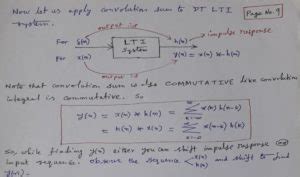 Now let us apply convolution sum to DT LTI
Page No. 9
system.
output is
impulse response
For δ(n) LTI System h(n)
For x(n) y(n) = x(n) * h(n)
output is
Note that convolution sum is also COMMUTATIVE like convolution
integral is commutative. So
y(n) = x(n) * h(n) = ∞ Σ k=-∞ x(k) h(n-k)
= h(n) * x(n) = ∞ Σ k=-∞ x(n-k) h(k)
So, while finding y(n) either you can shift impulse response or
input sequence. observe the sequence x(n) h(n) and shift to find
y(n).